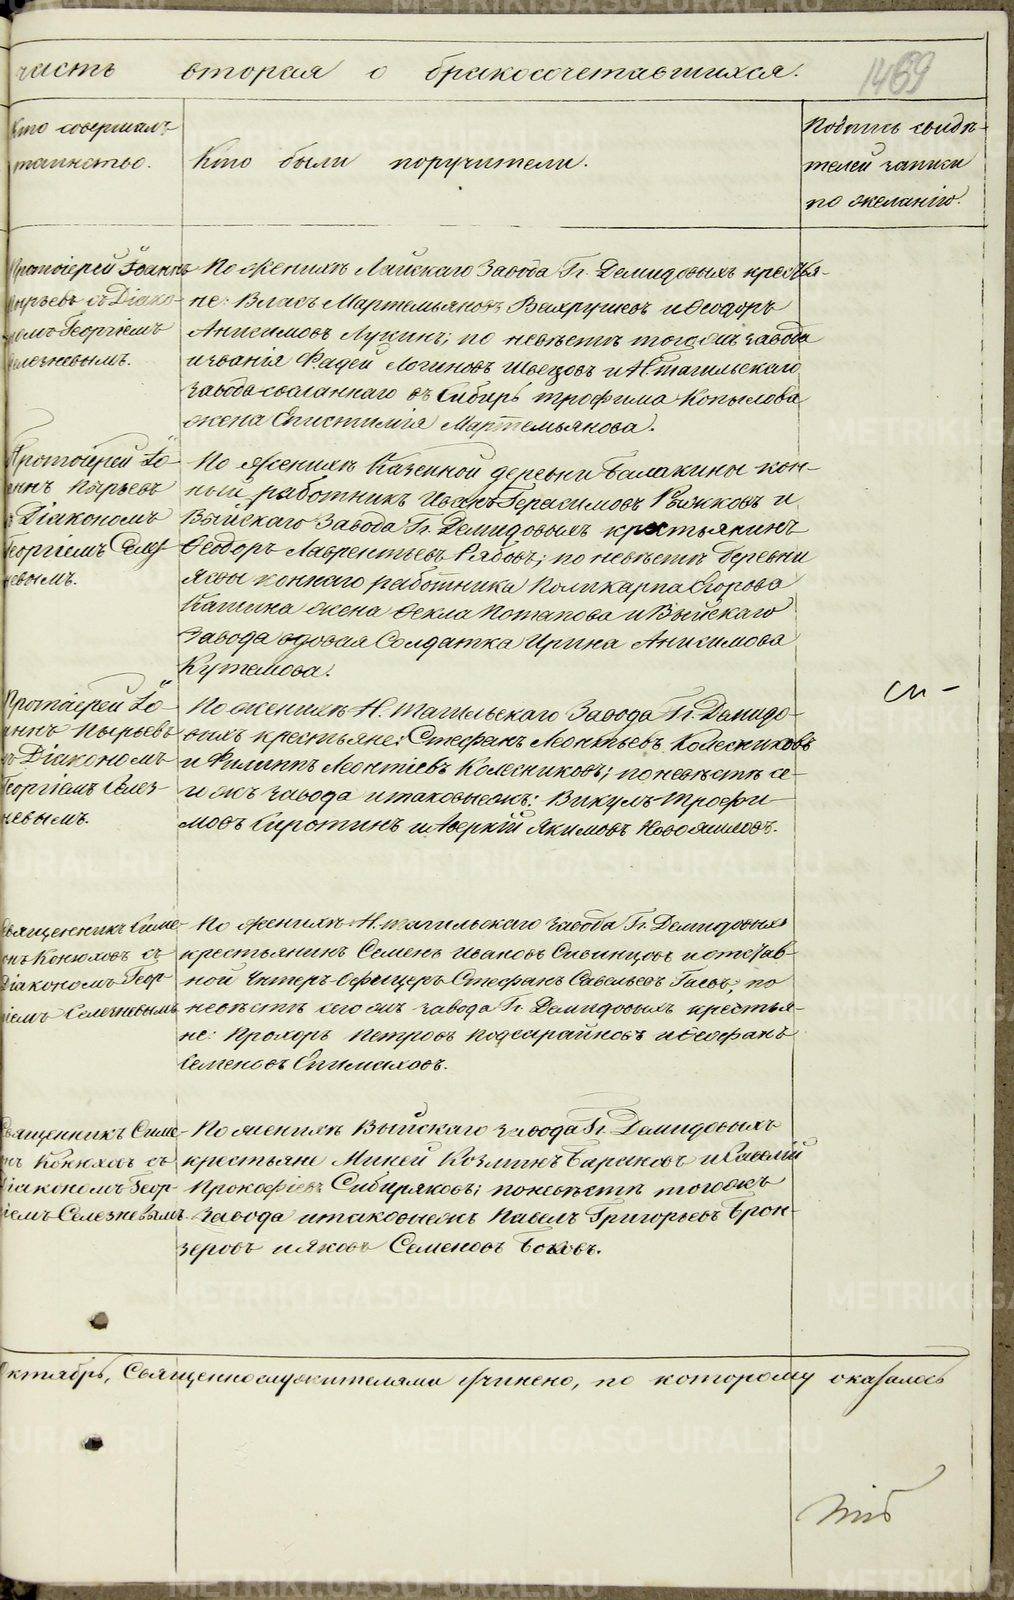 часть вторая о бракосочетавшихся.
1469
Кто совершалъ
таинство.
Кто были поручители.
Подпись свидѣ-
телей записи
по желанію.
Протоіерей Іоаннъ
Пырьевъ съ Діако-
номъ Георгіемъ
Селезневымъ.
По женихѣ Лайскаго Завода Гг. Демидовыхъ крестья-
не: Власъ Мартемьяновъ Вахрушевъ и Ѳеодоръ
Анисимовъ Лукинъ; по невѣстѣ тогожъ завода
и званія Фадей Логиновъ Швецовъ и Н. тагильскаго
завода сосланнаго въ Сибирь Трофима Копылова
жена Епистимія Мартемьянова.
Протоіерей Іо-
аннъ Пырьевъ
съ Діакономъ
Георгіемъ Селез-
невымъ.
По Женихѣ Казенной деревни Балакины кон-
ный работникъ Иванъ Герасимовъ Рыжковъ и
Выйскаго Завода Гг. Демидовыхъ крестьянинъ
Ѳеодоръ Лаврентьевъ Рябовъ; по невѣстѣ Деревни
Явы коннаго работника Поликарпа Егорова
Кашина жена Ѳекла Потапова и Выйскаго
Завода вдовая Солдатка Ирина Анисимова
Кутемова.
Протоіерей Іо-
аннъ Пырьевъ
съ Діакономъ
Георгіемъ Селез-
невымъ.
По женихѣ Н. тагильскаго Завода Гг. Демидо-
выхъ крестьяне: Стефанъ Леонтьевъ Колесниковъ
и Филиппъ Леонтіевъ Колесниковъ; по невѣстѣ се-
гожъ завода и таковыежъ: Викулъ Трофи-
мовъ Сиротинъ и Аверкій Якимовъ Новожиловъ.
Священникъ Симе-
онъ Конюховъ съ
Діакономъ Геор-
гіемъ Селезневымъ
По женихѣ Н. тагильскаго завода Гг. Демидовыхъ
крестьянинъ Семенъ Ивановъ Сивинцовъ и отстав-
ной Унтеръ-Офицеръ Стефанъ Савельевъ Гаевъ, по
невѣстѣ сегожъ завода Гг. Демидовыхъ крестья-
не: Прохоръ Петровъ Подсарайновъ и Ѳеофанъ
Семеновъ Епимаховъ.
Священникъ Симе-
онъ Конюховъ съ
Діакономъ Геор-
гіемъ Селезневымъ.
По женихѣ Выйскаго завода Гг. Демидовыхъ
крестьяне Миней Козминъ Барановъ и Савелій
Прокофіевъ Сибиряковъ; по невѣстѣ тогожъ
завода и таковыежъ Павелъ Григорьевъ Брон-
зеровъ и Яковъ Семеновъ Боковъ.
Октябрь, Священнослужителями учинено, по которому оказалось
METRIKI.GASO-URAL.RU